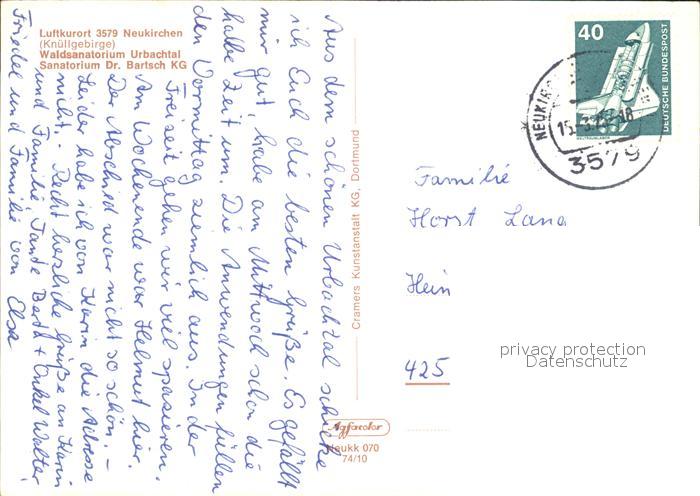 Luftkurort 3579 Neukirchen
(Knüllgebirge)
Waldsanatorium Urbachtal
Sanatorium Dr. Bartsch KG
Aus dem schönen Urbachtal schicke
ich Euch die besten Grüße. Es gefällt
mir gut, habe am Mittwoch schon die
halbe Zeit um. Die Anwendungen füllen
den Vormittag ziemlich aus. In der
Freizeit gehen wir viel spazieren.
Am Wochenende war Helmut hier.
Der Abschied war nicht so schön. –
Leider habe ich von Karin die Adresse
nicht. Recht herzliche Grüße an Karin
und Familie, Tante Berta + Onkel Walter,
Friedel und Familie von Elsa
Cramers Kunstanstalt KG, Dortmund
Agfacolor
Neukk 070
74/10
40
DEUTSCHE BUNDESPOST
WELTRAUMLABOR
3579
Familie
Horst Lang
Hein
425
privacy protection
Datenschutz